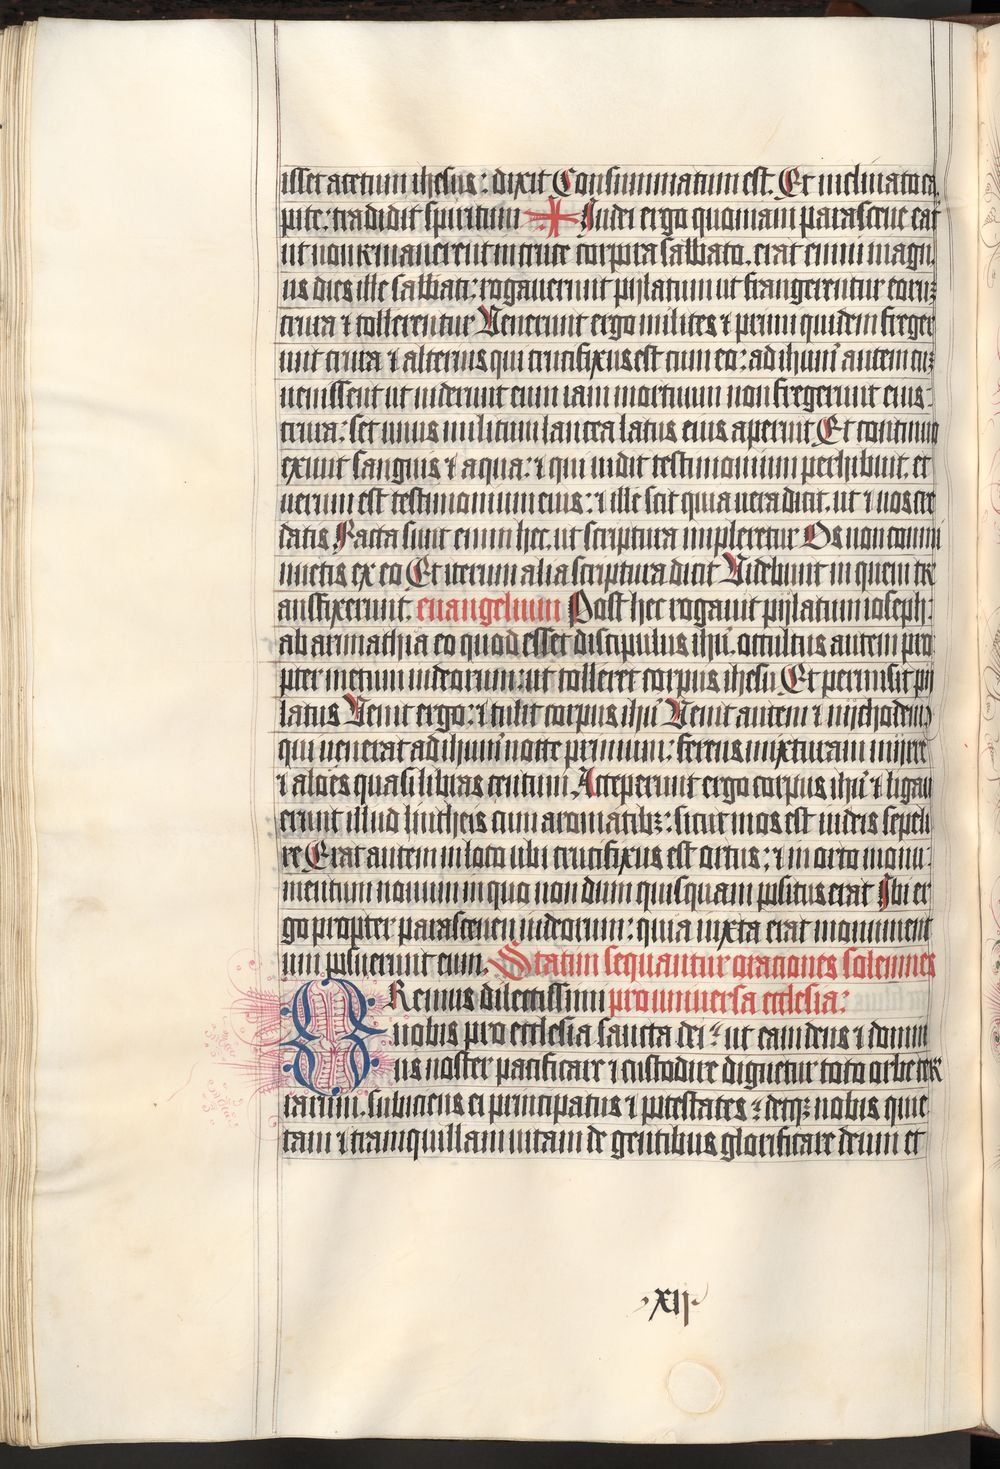 isset acetum ihesus: dixit Consummatum est. Et inclinato ca
pite: tradidit spiritum ✠ Iudei ergo quoniam parasceue erat
ut non remanerent in cruce corpora sabbato. erat enim magn
us dies ille sabbati: rogauerunt pylatum ut frangerentur eoruꝫ
crura ⁊ tollerentur Uenerunt ergo milites ⁊ primi quidem freger
unt crura ⁊ alterius qui crucifixus est cum eo: ad ihum̄ autem cuꝫ
uenissent ut uiderunt eum iam mortuum non fregerunt eius
crura: set unus militum lancea latus eius aperuit Et continuo
exiuit sanguis ⁊ aqua: ⁊ qui uidit testimonium perhibuit. et
uerum est testimonium eius: ⁊ ille scit quia uera dicit. ut ⁊ uos cre
datis. Facta sunt enim hec. ut scriptura impleretur Os non comm
inuetis ex eo Et iterum alia scriptura dicit Uidebunt in quem tr
ansfixerunt. euangelium Post hec rogauit pylatum ioseph:
ab arimathia eo quod esset discipulus ihū. occultus autem pro
pter metum iudeorum: ut tolleret corpus ihesu Et permisit py
latus Uenit ergo: ⁊ tulit corpus ihū Uenit autem ⁊ nychodem9
qui uenerat ad ihum̄ nocte primum: ferens mixturam mirre
⁊ aloes quasi libras centum. Acceperunt ergo corpus ihū ⁊ ligau
erunt illud lintheis cum aromatibꝫ: sicut mos est iudeis sepeli
re Erat autem in loco ubi crucifixus est ortus: ⁊ in orto monu
mentum nouum in quo non dum quisquam positus erat Ibi er
go propter parasceuen iudeorum: quia iuxta erat monument
um posuerunt eum. Statim sequantur orationes solemnes
ORemus dilectissimi pro uniuersa ecclesia:
nobis pro ecclesia sancta dei: ut eam deus ⁊ domin
us noster pacificare ⁊ custodire dignetur toto orbe terr
rarum. subiciens ei principatus ⁊ potestates: detqꝫ nobis quie
tam ⁊ tranquillam uitam de gentibus glorificare deum et
·xij·